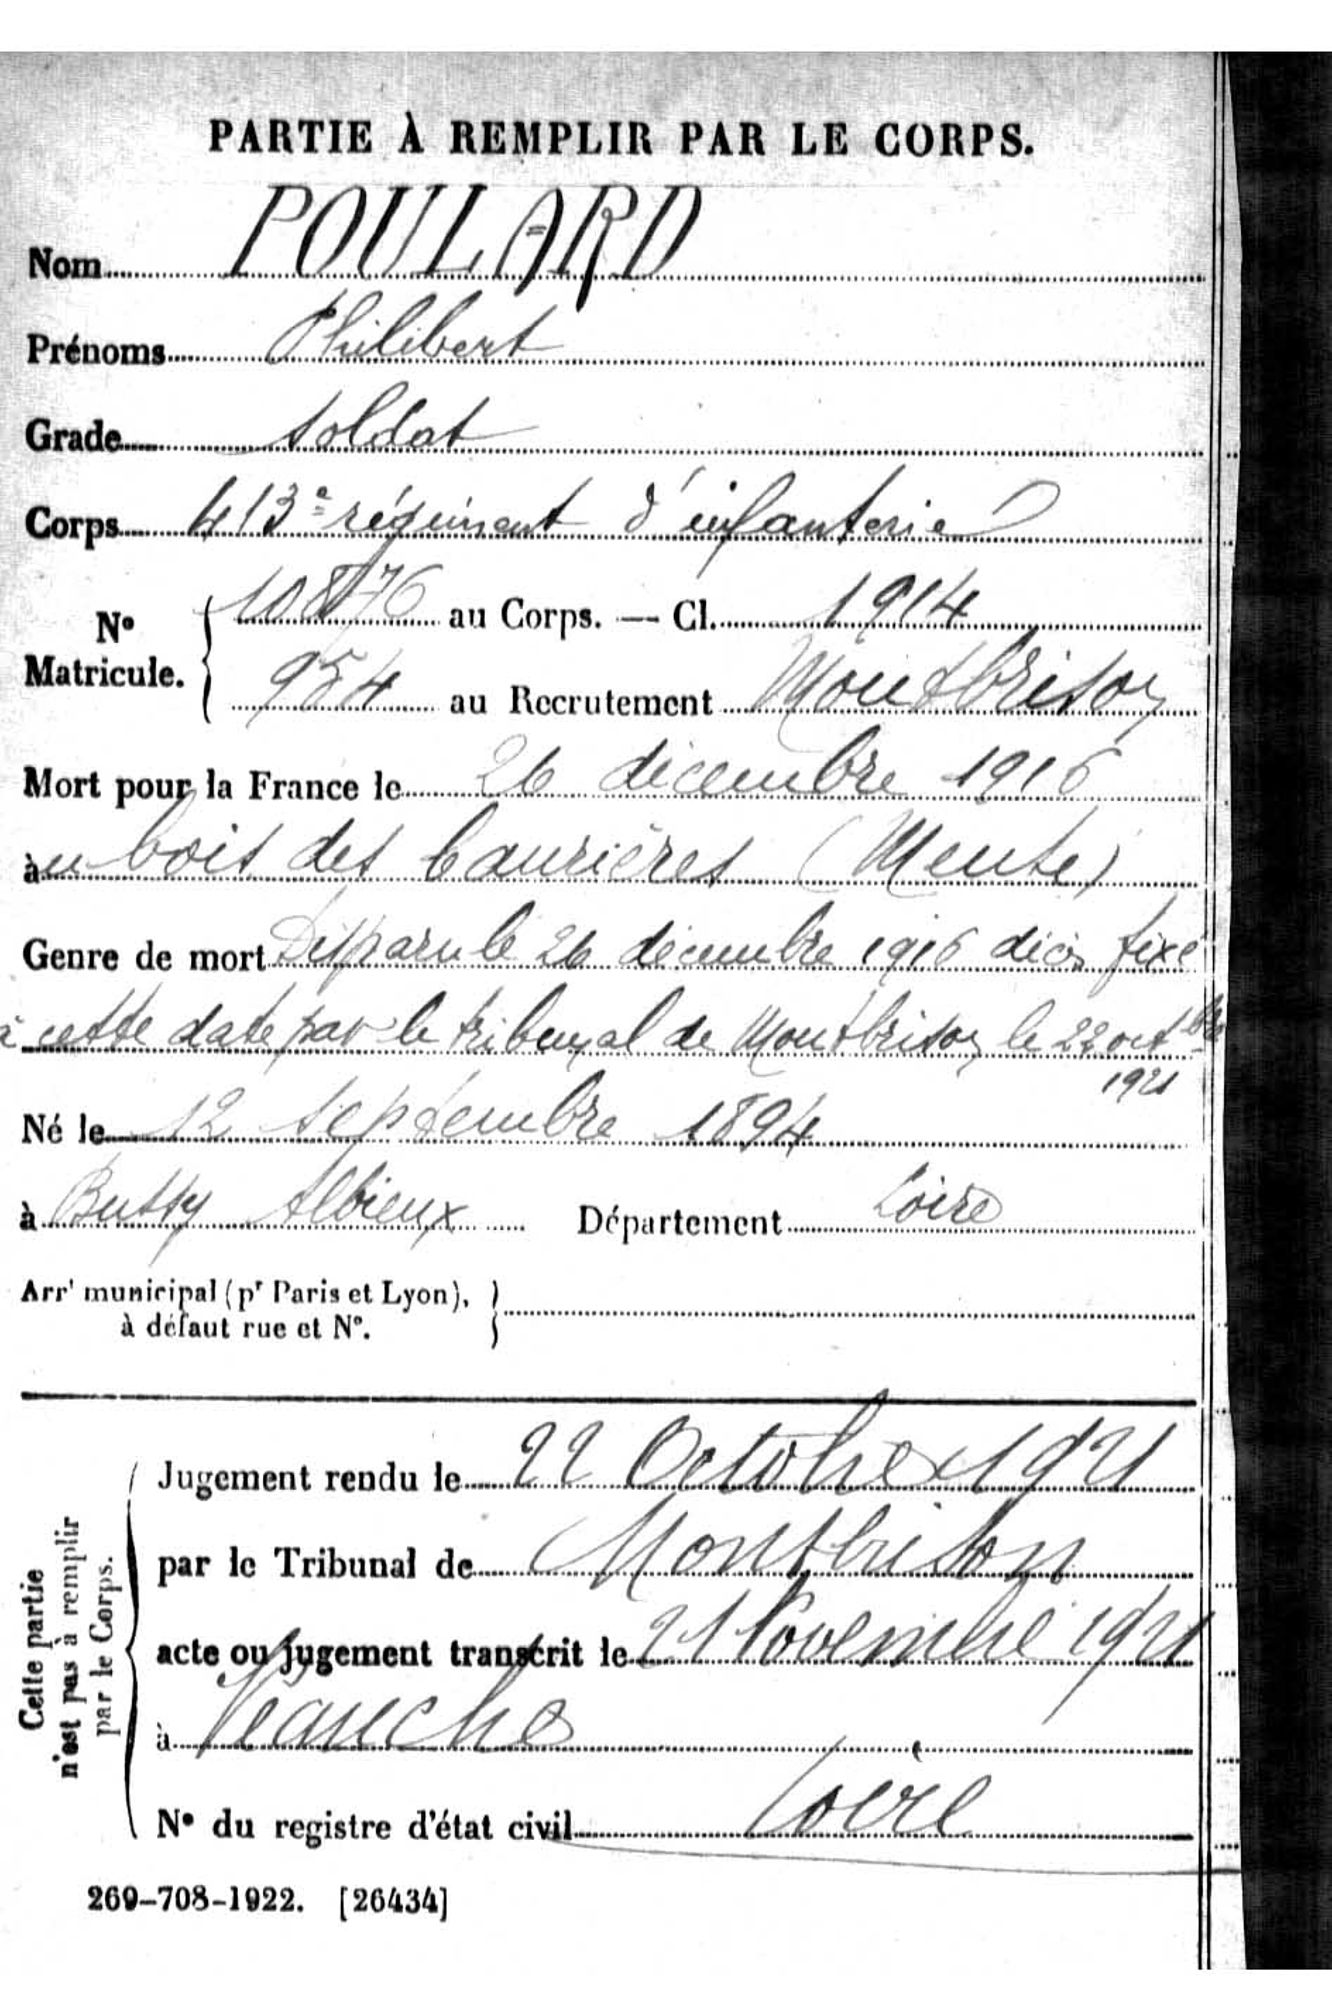 PARTIE À REMPLIR PAR LE CORPS.
Nom POULARD
Prénoms Philibert
Grade soldat
Corps 413e régiment d'infanterie
No Matricule. { 10876 au Corps. — Cl. 1914
954 au Recrutement Montbrison
Mort pour la France le 26 décembre 1916
au bois des Caurières (Meuse)
Genre de mort Disparu le 26 décembre 1916 décès fixé
à cette date par le tribunal de Montbrison le 22 octbre
1921
Né le 12 septembre 1894
à Bussy Albieux Département Loire
Arrt municipal (pr Paris et Lyon), }
à défaut rue et No.
Cette partie
n'est pas à remplir
par le Corps.
Jugement rendu le 22 Octobre 1921
par le Tribunal de Montbrison
acte ou jugement transcrit le 21 Novembre 1921
à Veauche
No du registre d'état civil Loire
269-708-1922. [26434]